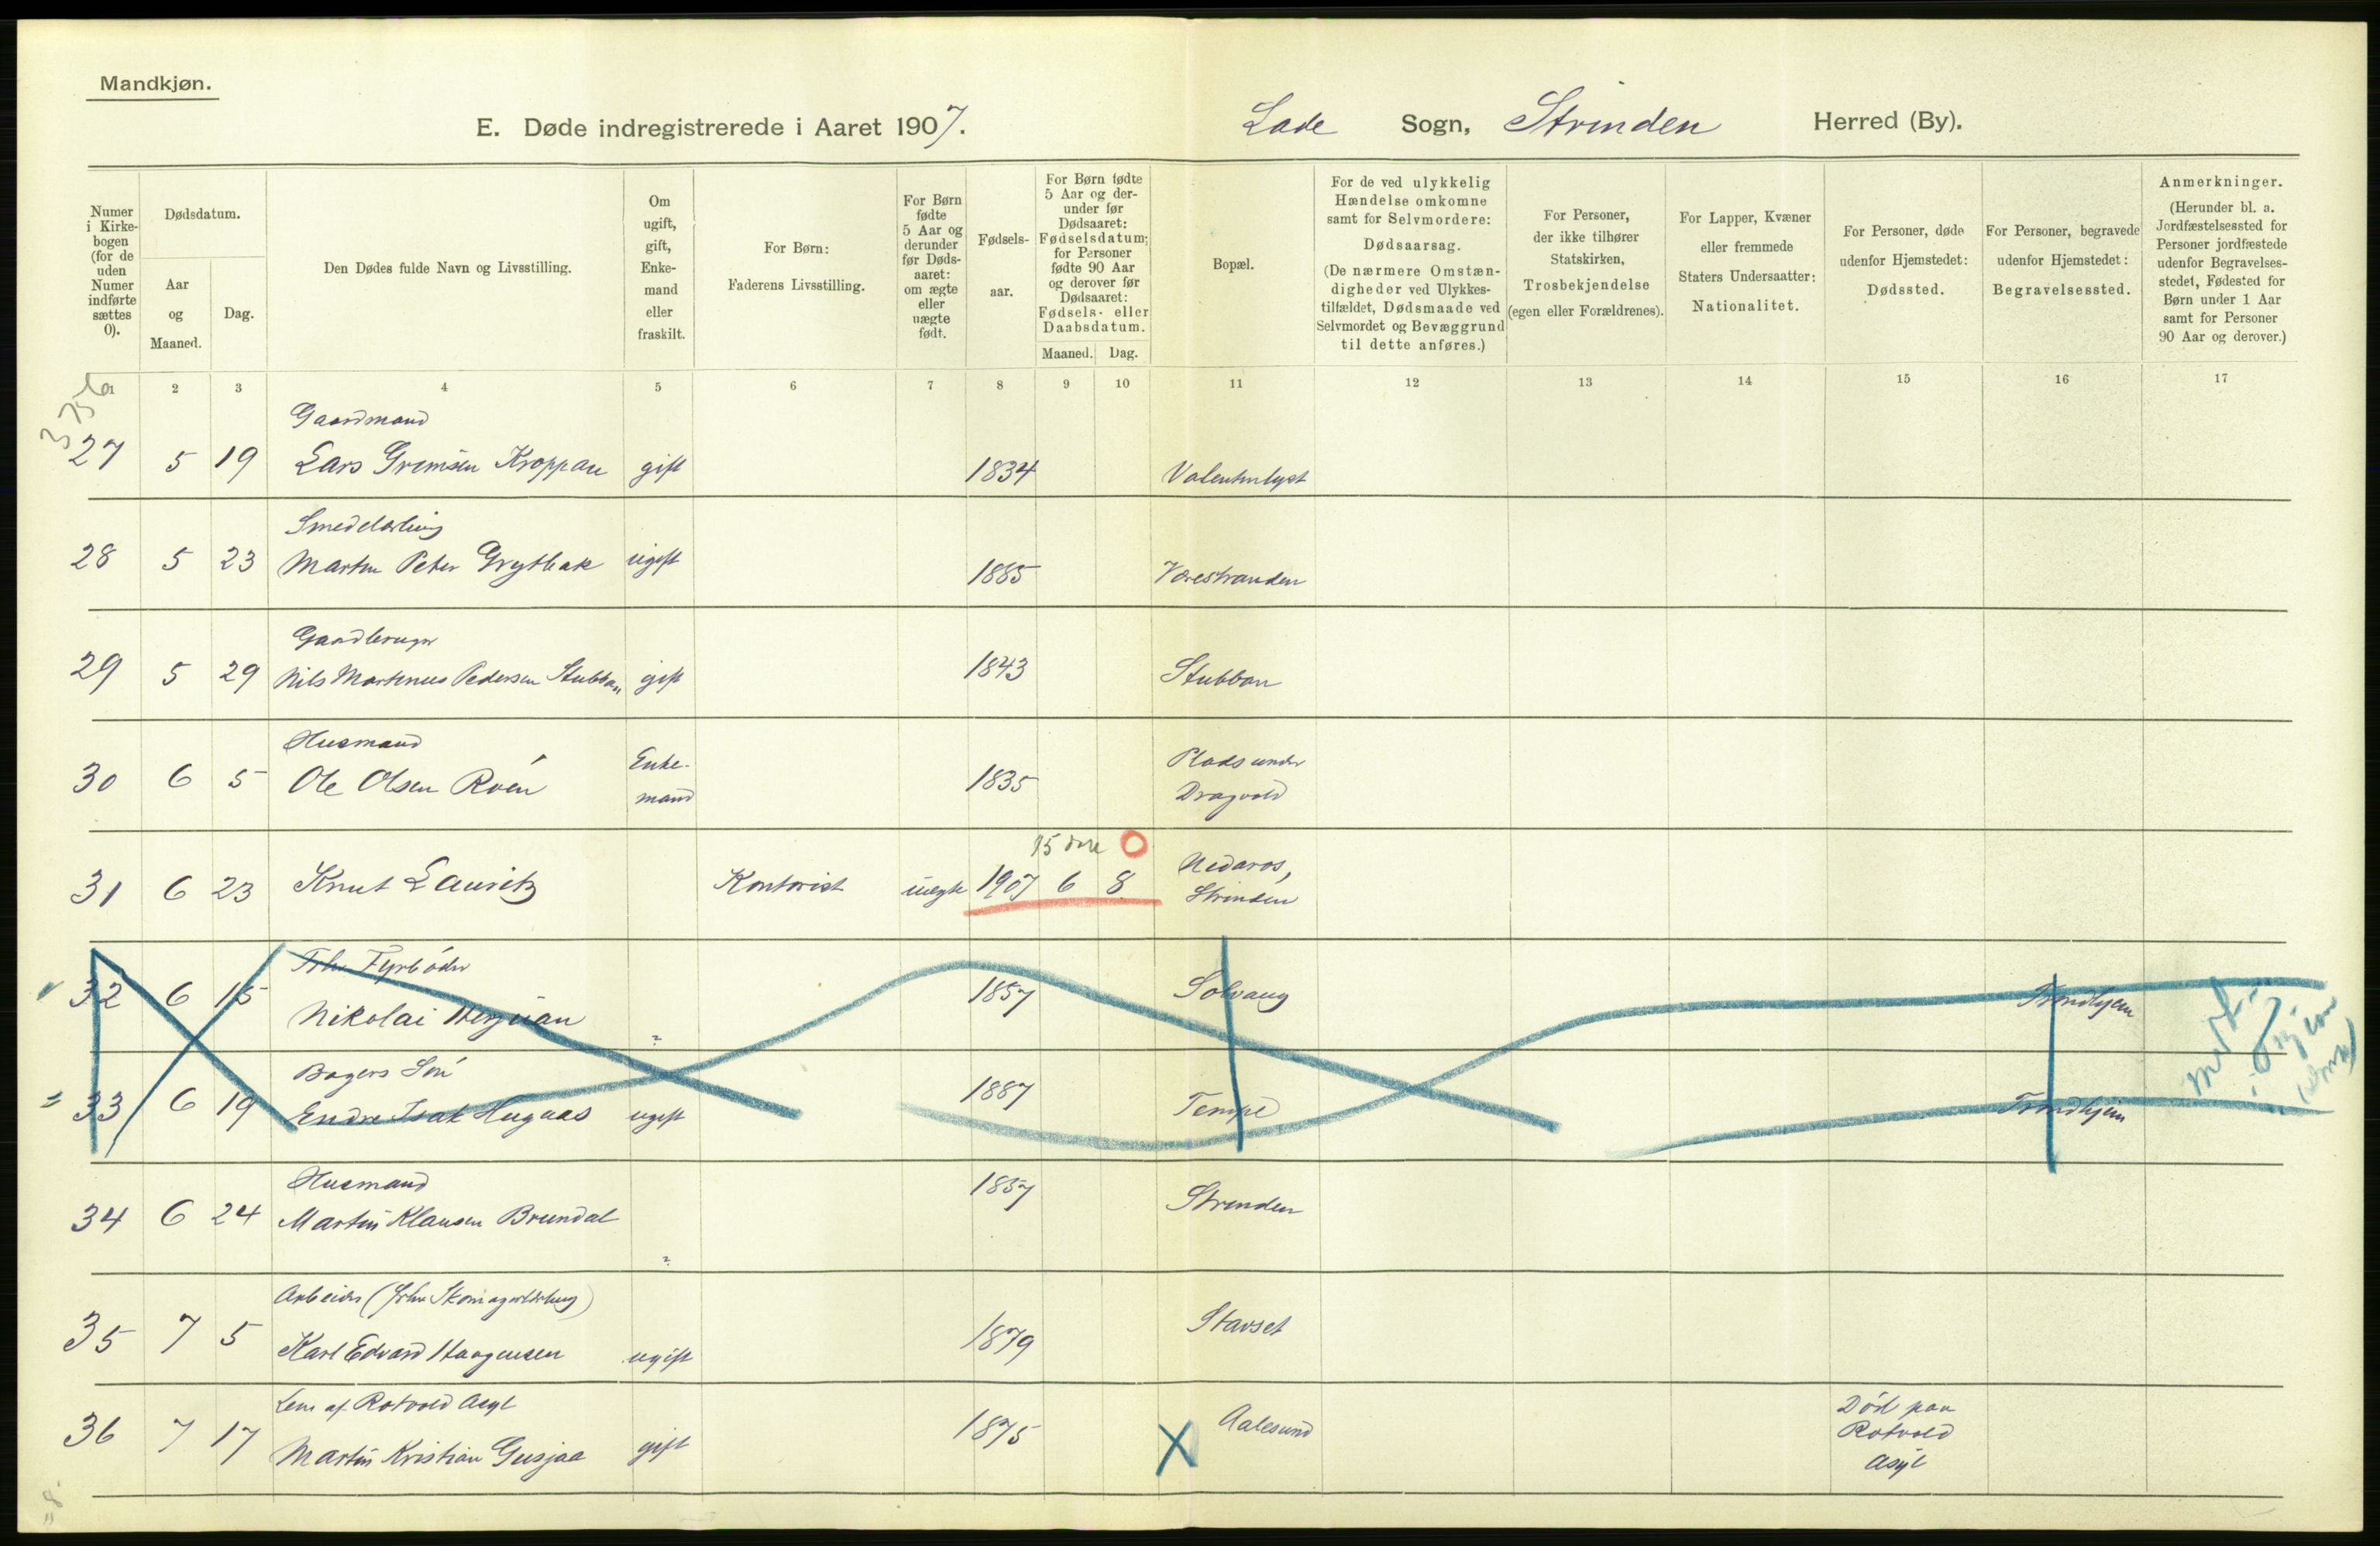 Mandkjøn.
E. Døde indregistrerede i Aaret 1907.
Lade Sogn, Strinden Herred (By).
Numer i Kirkebogen (for de uden Numer indførte sættes 0).
Dødsdatum.
Aar og Maaned.
Dag.
Den Dødes fulde Navn og Livsstilling.
Om ugift, gift, Enkemand eller fraskilt.
For Børn: Faderens Livsstilling.
For Børn fødte 5 Aar og derunder før Dødsaaret: om ægte eller uægte født.
Fødselsaar.
For Børn fødte 5 Aar og derunder før Dødsaaret: Fødselsdatum; for Personer fødte 90 Aar og derover før Dødsaaret: Fødsels- eller Daabsdatum.
Maaned. Dag.
Bopæl.
For de ved ulykkelig Hændelse omkomne samt for Selvmordere: Dødsaarsag. (De nærmere Omstændigheder ved Ulykkestilfældet, Dødsmaade ved Selvmordet og Bevæggrund til dette anføres.)
For Personer, der ikke tilhører Statskirken, Trosbekjendelse (egen eller Forældrenes).
For Lapper, Kvæner eller fremmede Staters Undersaatter: Nationalitet.
For Personer, døde udenfor Hjemstedet: Dødssted.
For Personer, begravede udenfor Hjemstedet: Begravelsessted.
Anmerkninger. (Herunder bl. a. Jordfæstelsessted for Personer jordfæstede udenfor Begravelsesstedet, Fødested for Børn under 1 Aar samt for Personer 90 Aar og derover.)
1 2 3 4 5 6 7 8 9 10 11 12 13 14 15 16 17
Gaardmand
27 5 19 Lars Gremsen Kroppan gift 1834 Valentinlyst
Smedlærling
28 5 23 Martin Peter Grytbak ugift 1885 Værestranden
Gaardbruger
29 5 29 Nils Martinus Pedersen Stubban gift 1843 Stubban
Husmand
30 6 5 Ole Olsen Roén Enkemand 1835 Plads under Dragvold
15 dage
31 6 23 Knut Lauritz Kontorist uægte 1907 6 8 Nidaros, Strinden
Fhv Fyrbøder
32 6 15 Nikolai Herjuan ? 1857 Solvang Trondhjem
Bagers Søn
33 6 19 Endre Isak Hugaas ugift 1887 Tempe Trondhjem
Husmand
34 6 24 Martin Klausen Brundal ? 1857 Strinden
Arbeider (fhv Skomagerlærling)
35 7 5 Karl Edvard Haagensen ugift 1879 Stavset
Lem af Rotvold Asyl
36 7 17 Martin Kristian Gusjaa gift 1875 X Aalesund Død paa Rotvold Asyl